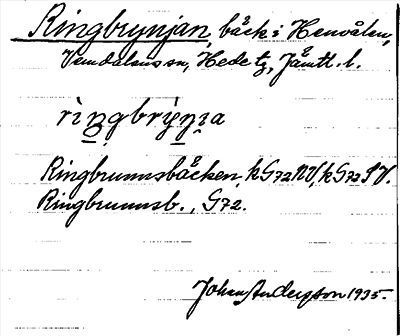 Ringbrynjan, bäck i Henvålen,
Vemdalens sn, Hede tg, Jämtl. l.
rìŋgbrỳn̠i̠a
Ringbrunnsbäcken, k G72 NV, k G72 SV.
Ringbrunnsb., G72.
Johan Anderzon 1935.